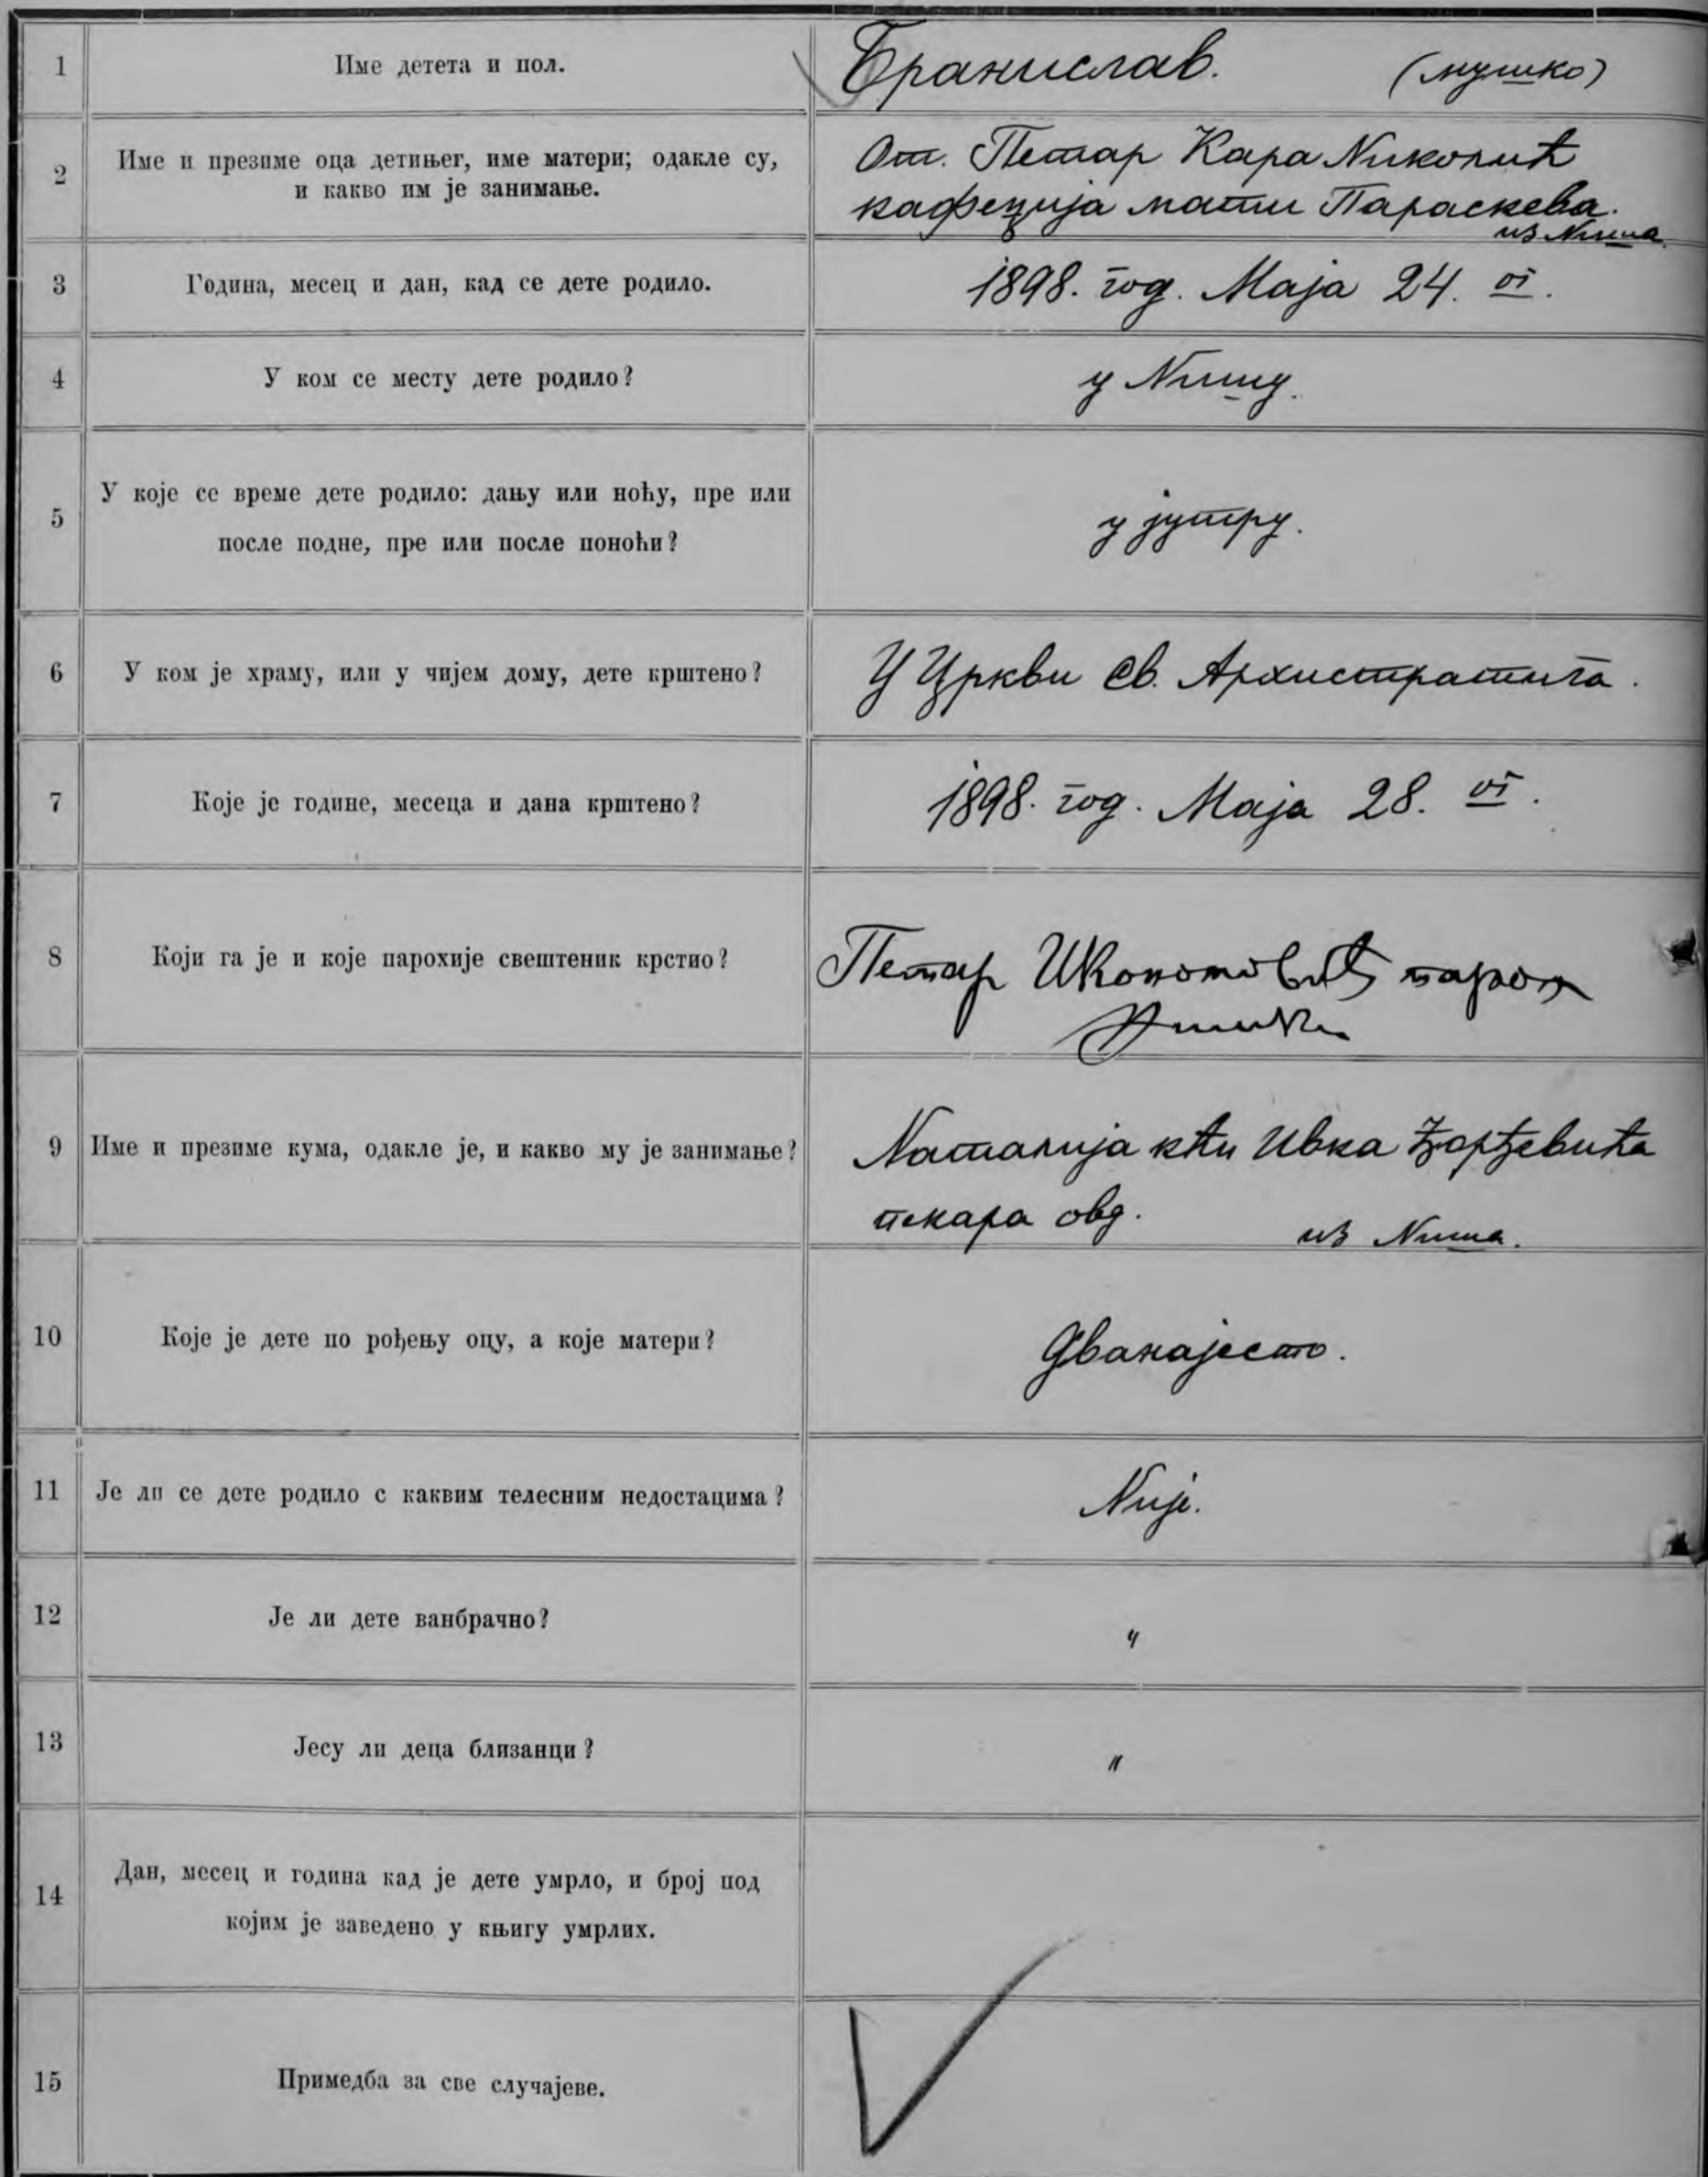 1 Име детета и пол. Бранислав. (мушко)
2 Име и презиме оца детињег, име матери; одакле су, От. Петар Кара Николић
и какво им је занимање. кафеџија мати Параскева.
из Ниша.
3 Година, месец и дан, кад се дете родило. 1898. год. Маја 24. ог.
4 У ком се месту дете родило? у Нишу.
5 У које се време дете родило: дању или ноћу, пре или
после подне, пре или после поноћи? у јутру.
6 У ком је храму, или у чијем дому, дете крштено? У Цркви Св. Архистратига.
7 Које је године, месеца и дана крштено? 1898. год. Маја 28. ог.
8 Који га је и које парохије свештеник крстио? Петар Икономовић парох
Нишки
9 Име и презиме кума, одакле је, и какво му је занимање? Наталија кћи Ивка Ђорђевића
пекара овд. из Ниша.
10 Које је дете по рођењу оцу, а које матери? дванајесто.
11 Је ли се дете родило с каквим телесним недостацима? Није.
12 Је ли дете ванбрачно? "
13 Јесу ли деца близанци? "
14 Дан, месец и година кад је дете умрло, и број под
којим је заведено у књигу умрлих.
15 Примедба за све случајеве.